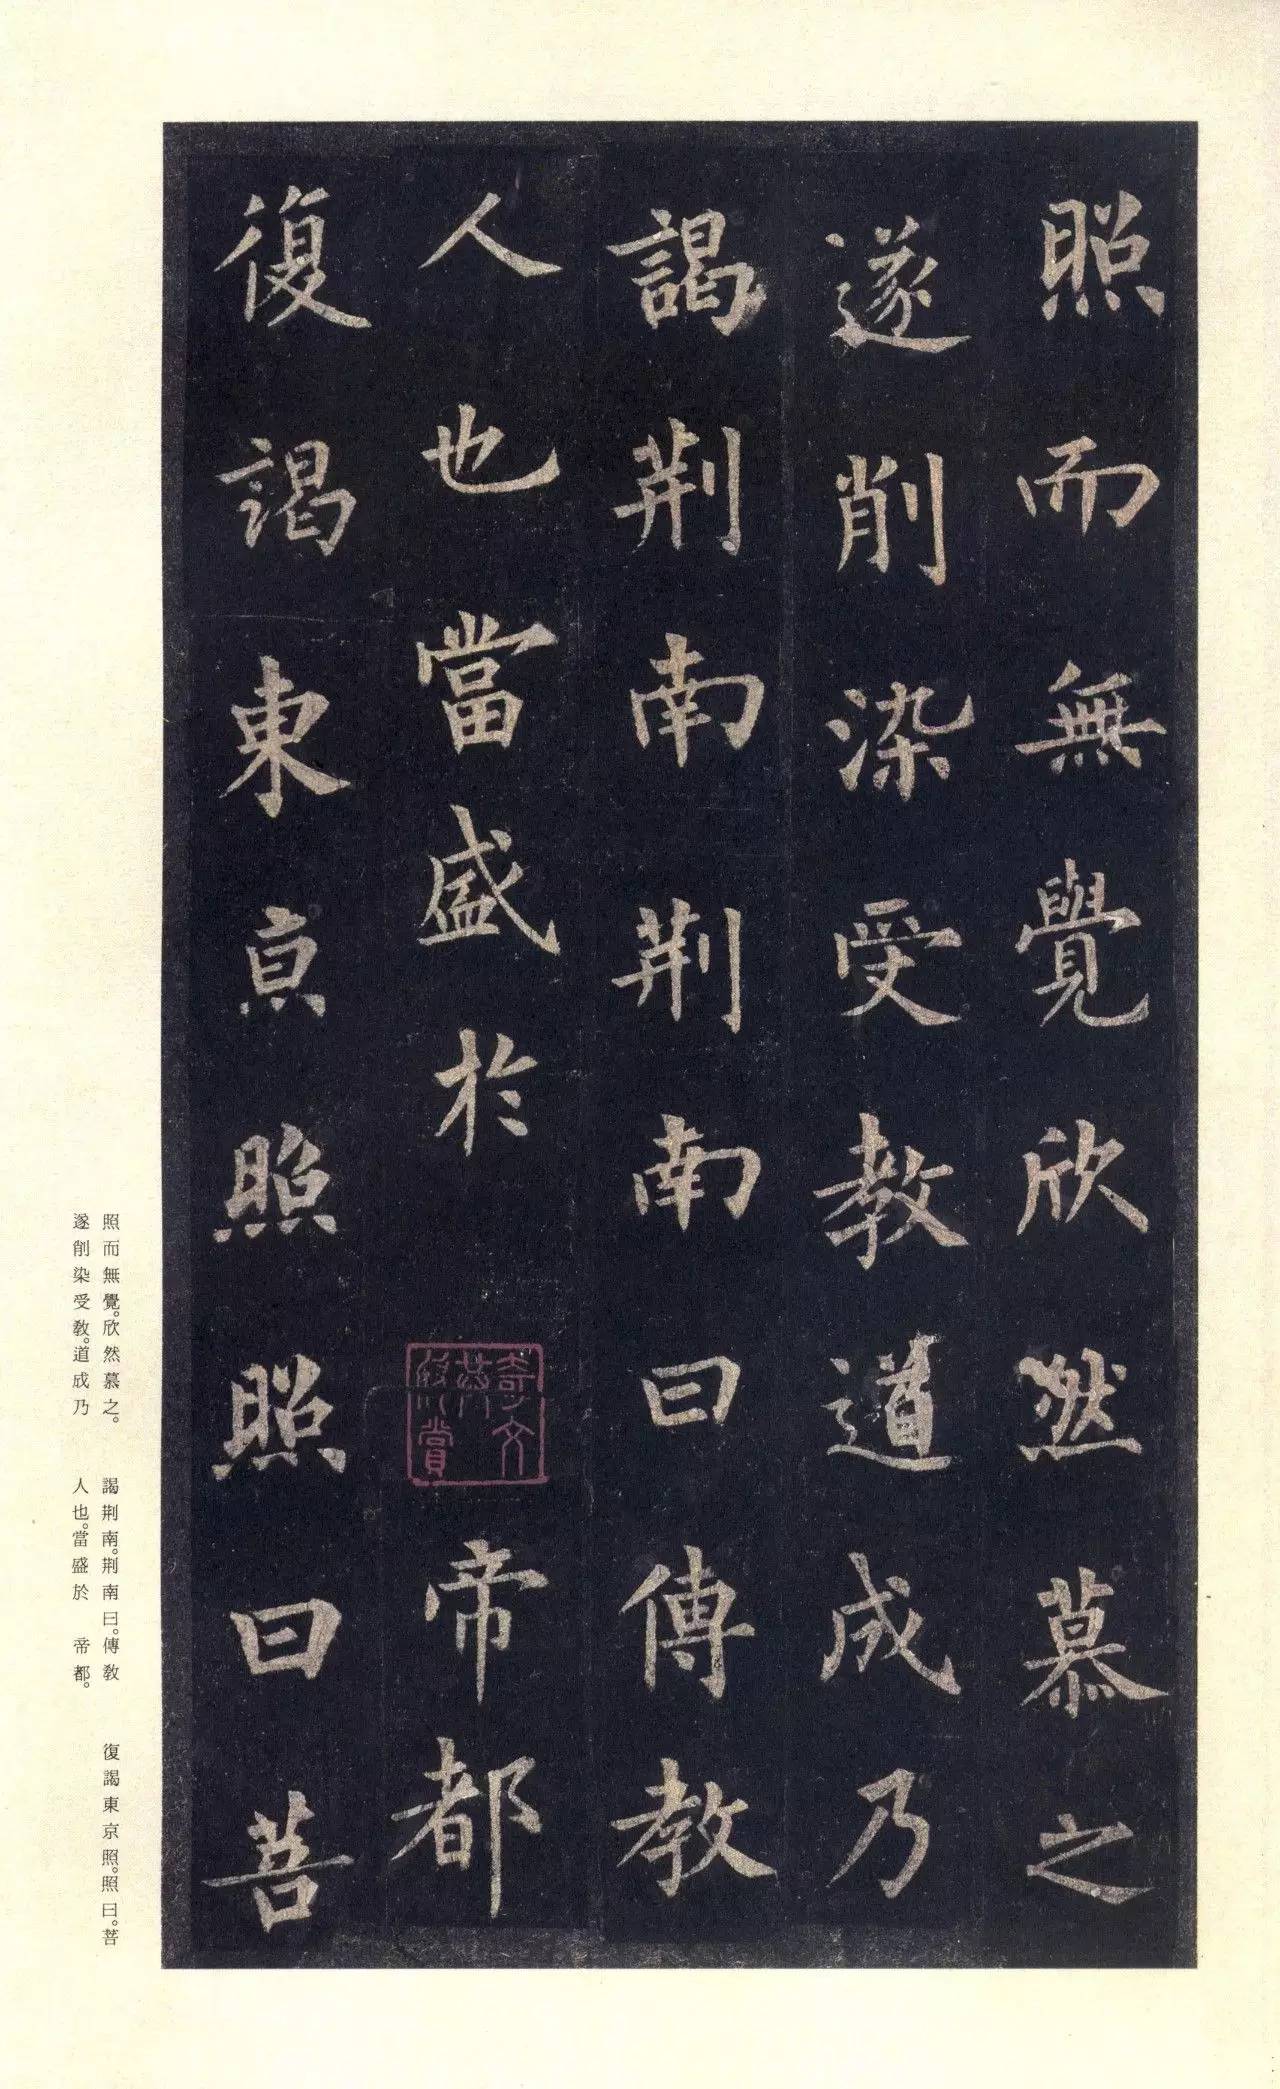 照而無覺欣然慕之
遂削染受教道成乃
謁荆南荆南曰傳教
人也當盛於
奇文
共
欣賞
帝都
復謁東京照照曰菩
照而無覺。欣然慕之。
遂削染受教。道成乃
謁荆南。荆南曰。傳教
人也。當盛於　帝都。
復謁東京照。照曰。菩